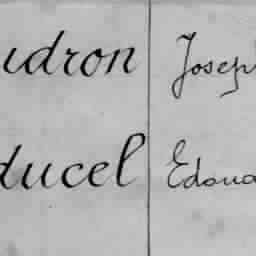 udron Josep
ducel Edoua